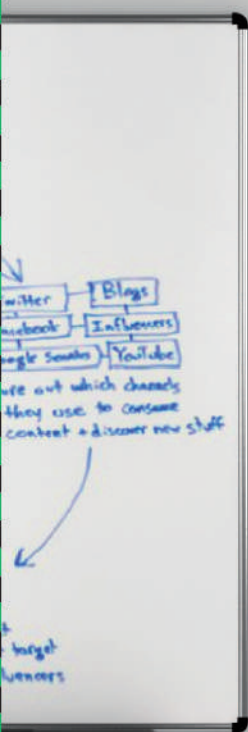 witter Blogs
acebook Influencers
oogle Search YouTube
ure out which channels
they use to consume
content + discover new stuff
t
target
luencers